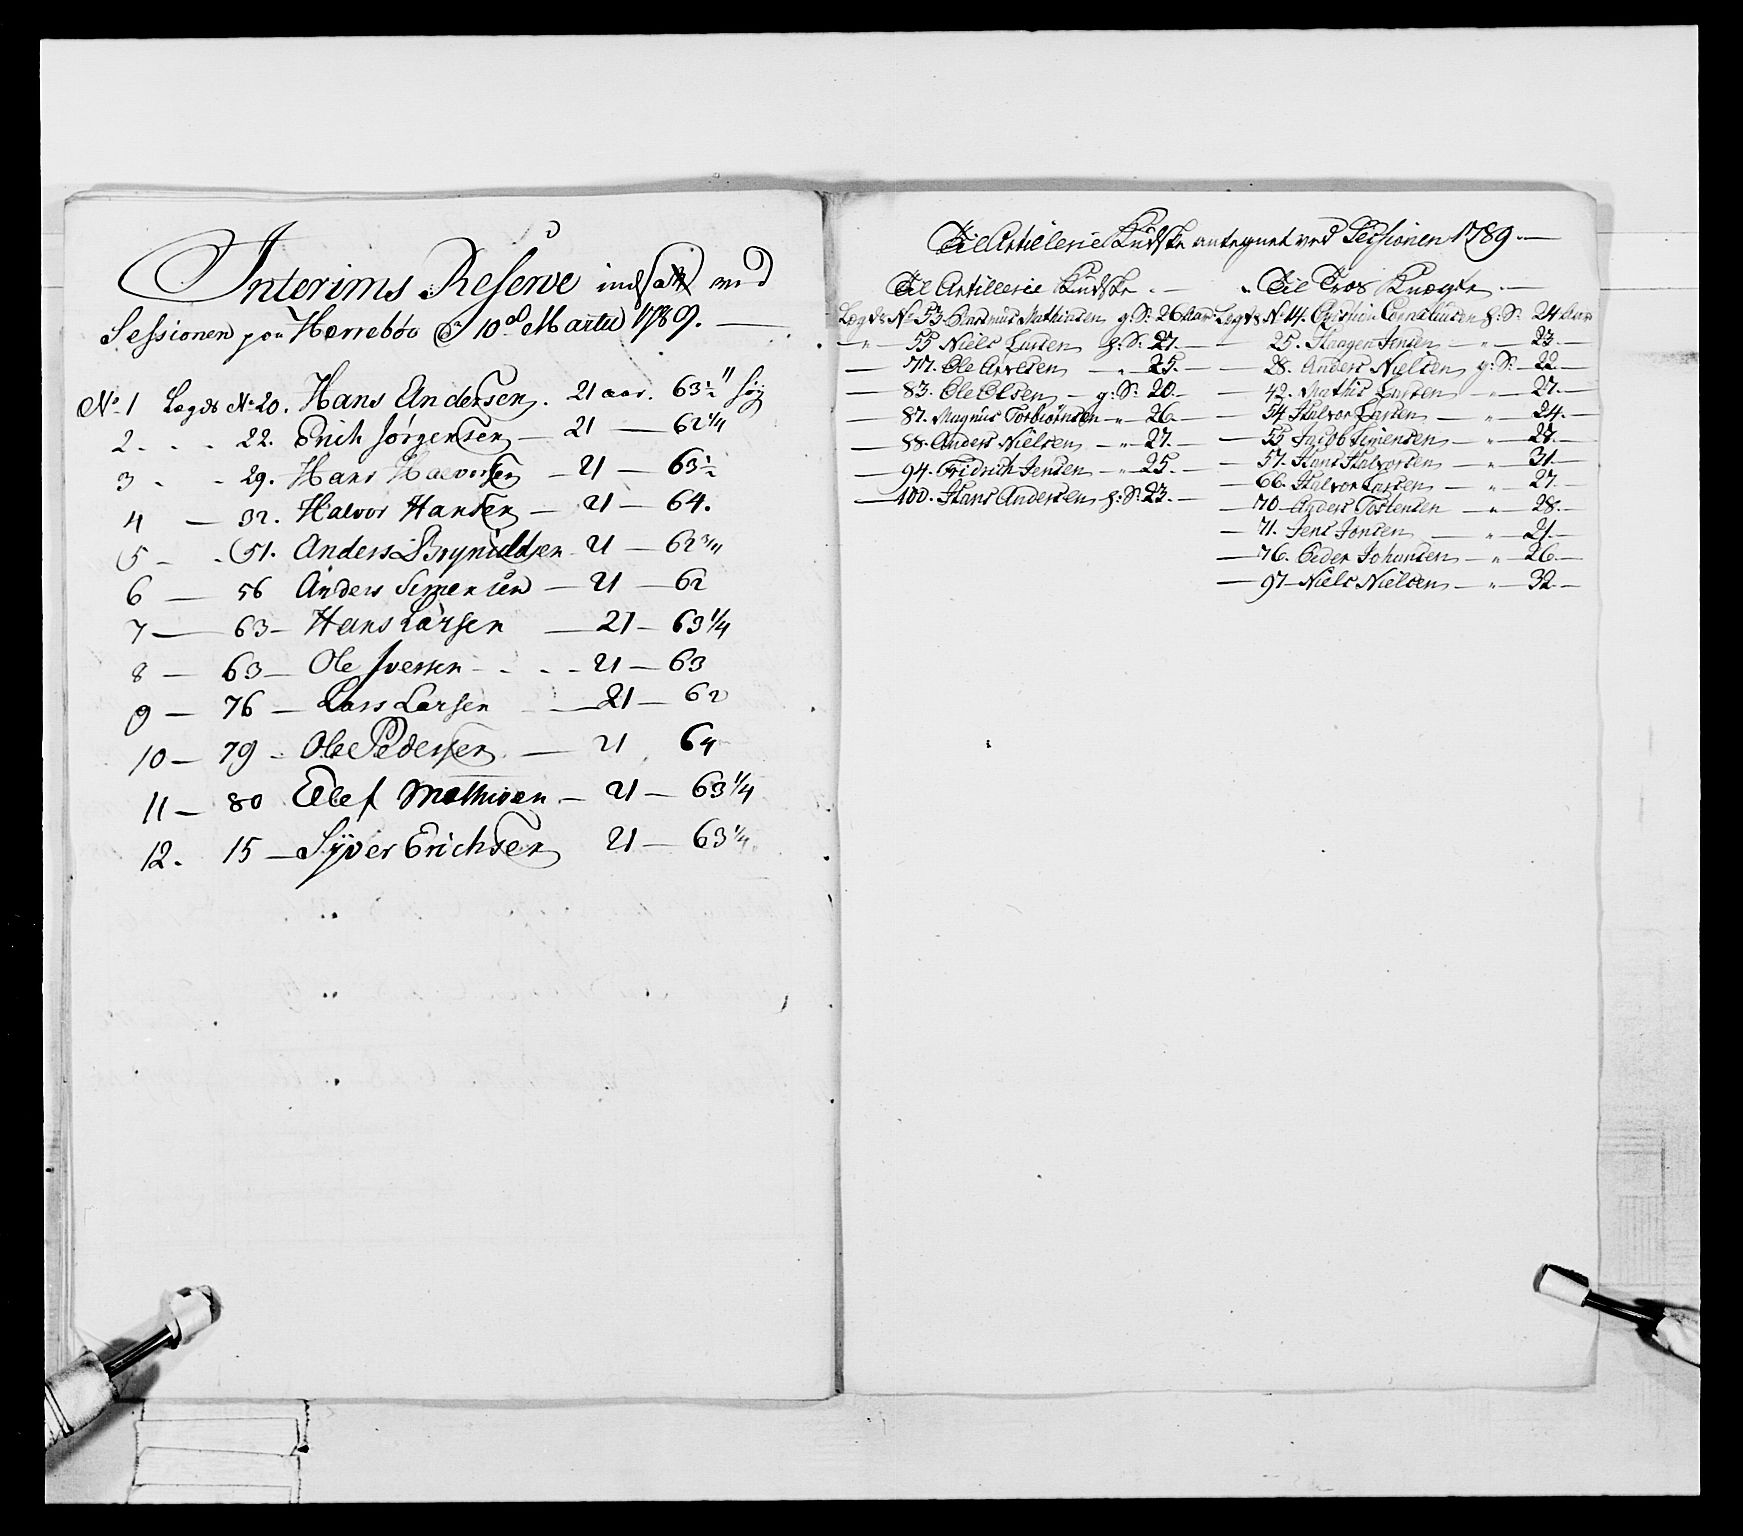 Interims Reserve indsadt ved
Sessionen paa Herrebøe d 10de Martii 1789.
No 1 Lægds No 20. Hans Andersen. 21 aar. 63½" høy
2. - - 22. Erich Jørgensen — 21 — 62 1/4
3 - - 29. Hans Halvorsen — 21 — 63½
4 — 32. Halvor Hansen — 21 — 64.
5 - - 51. Anders Brynildsen 21 — 62 3/4
6 — 56 Anders Simensen — 21 — 62
7 — 63 — Hans Larsen — 21 — 63 1/4
8 — 63 — Ole Iversen - - - 21 — 63
9 — 76 — Lars Larsen — 21 — 62
10 — 79 - Ole Pedersen — 21 64
11 — 80 Ellef Mathisen — 21 — 63 1/4
12. 15 — Syver Erichsen 21 — 63 1/4.
Til Artillerie Kudske antegnet ved Sessionen 1789. —
Til Artillerie Kudske. —
Lægds No 53. Rasmus Mathiesen g: S: 26 Aar
— " — 55 Niels Larsen h: S: 27. —
— 77. Ole Arvesen — " — 25. —
— 83. Ole Olsen — g: S: 20. —
— 87. Magnus Torbiørnsen — " — 26. —
— 88. Anders Nielsen — " — 27. —
— 94. Fridrich Jensen — " — 25. —
— 100. Hans Andersen h: S: 23. —
Til Tros Knegte. —
Lægds No 14. Christian Corneliussen h: S: 24 Aar
— 25. Haagen Jensen — " — 23. —
— 28. Anders Nielsen g: S: — 22. —
— 42. Mathis Larsen — " — 27. —
— 54. Halvor Larsen — " — 24. —
— 55 Jacob Simensen — " — 28. —
— 57. Hans Halvorsen — " — 31. —
— 66. Halvor Larsen — " — 27. —
— 70 — Anders Torstensen — " — 28. —
— 71. Jens Jonsen — " — 21. —
— 76. Peder Johansen — " — 26. —
— 97 — Niels Nielsen — " — 32. —